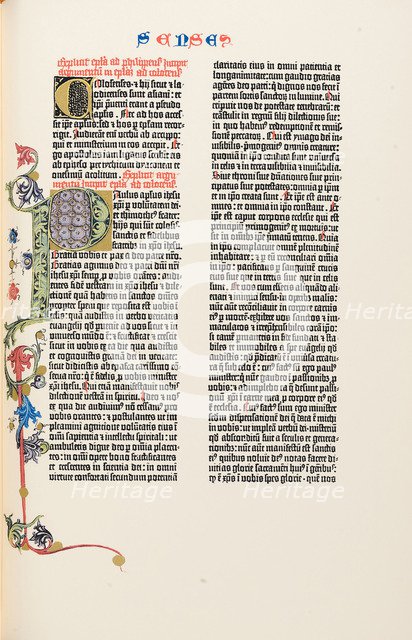 SENSES
Explicit epla ad philippenses Incipit
argumentum in epla ad colocenses
Colosenses et hij sicut et la
odicenses sunt asiani: et
ipi preventi erant a pseudo
aplis. Nec ad hos acces
sit ipe aplus: sed et hos p epla recor
rigit. Audierant eni verbu ab accippo:
qui et ministeriu in eos accepit. Er
go apostolus iam ligatus scribit eis
ab epheso per tychicum dyaconu et
onesimu acolitum. Explicit argu
mentu Incipit epla ad colocenses
Paulus aplus xpi ihesu
per voluntate dei
et thimotheus frater:
hijs qui sunt colossis
sanctis et fidelibus
fratribus in xpo ihesu.
Gratia vobis et pax a deo patre nro.
Gratias agimus deo et patri dni nri
ihesu xpi semp p vobis orantes: audi
entes fidem vestram in xpo ihesu et di
lectione qua habetis in sanctos omnes
propter spem que reposita est vobis i
celis: qua audistis in verbo veritatis
evangelij qd pvenit ad vos sicut et in
universo mudo e: et fructificat et cres
cit sicut in vobis ex ea die qua audistis
et cognovistis gratia dei in veritate:
sicut didicistis ab epafra carissimo co
servo nostro, qui e fidelis p vobis minister
xpi ihesu. Qui etia manifestavit nobis
dilectione vestra in spiritu. Ideo et nos
ex qua die audivimus no cessam? pro
vobis orantes: et postulantes ut im
pleamini agnitione voluntatis eius i
omni sapientia et intellectu spiritali: ut
ambuletis digne deo p omnia placen
tes: in omni opere bono fructificantes
et crescentes in scientia dei: in omni
virtute confortati secundum potentia
claritatis eius in omni patientia et
longanimitate: cum gaudio gratias
agentes deo patri: qui dignos nos fecit i
partem sortis sanctorum in lumine. Qui
eripuit nos de potestate tenebrarum: et
transtulit in regnu filij dilectionis sue:
in quo habem? redemptione et remissi
one peccatorum. Qui est ymago dei in
visibilis, primogenit? omnis creature:
quoniam in ipo condita sunt universa in
celis et in terra visibilia et invisibilia.
Sive throni sive dnationes sive princi
patus sive potestates: omnia p ipm
et in ipo creata sunt. Et ipe est ante om
nes: et omnia in ipo constant. Et
ipe est caput corporis ecclesie qui est
principiu, primogenitus ex mortuis: ut
sit in omnib? ipe primatu tenens.
Quia in ipo complacuit omne plenitudine
inhabitare: et p eu reconciliari omnia
in ipm: pacificans p sanguine crucis
eius sive que in terris sive que in celis
sunt. Et vos cum essetis aliquando alie
nati et inimici sensu: in operib? malis:
nunc aut reconciliavit in corpore carnis
ei? p morte: exhibere vos sanctos et im
maculatos et irreprehensibiles coram ipo:
si tamen permanetis in fide fundati et sta
biles et immobiles a spe evangelij qd
audistis: qd predicatu e in universa
creatura que sub celo e: cui? fact? sum ego paul?
minister: qui nunc gaudeo i passionib? pro
vobis: et adimpleo ea que desunt passi
onu xpi i carne mea p corpore ei? qd
e ecclesia. Cui? fact? sum ego minister
secundum dispensatione dei que data e michi
in vobis: ut impleam verbu dei: misteriu
qd absconditu fuit a seculis et genera
tionib?: nunc aut manifestatu e sanctis ei?:
quibus voluit de? notas facere divi
tias glorie sacramenti hui? i gentib?:
qd e xps: i vobis spes glorie. que nos
Heritage
Heritage
Heritage
Heritage